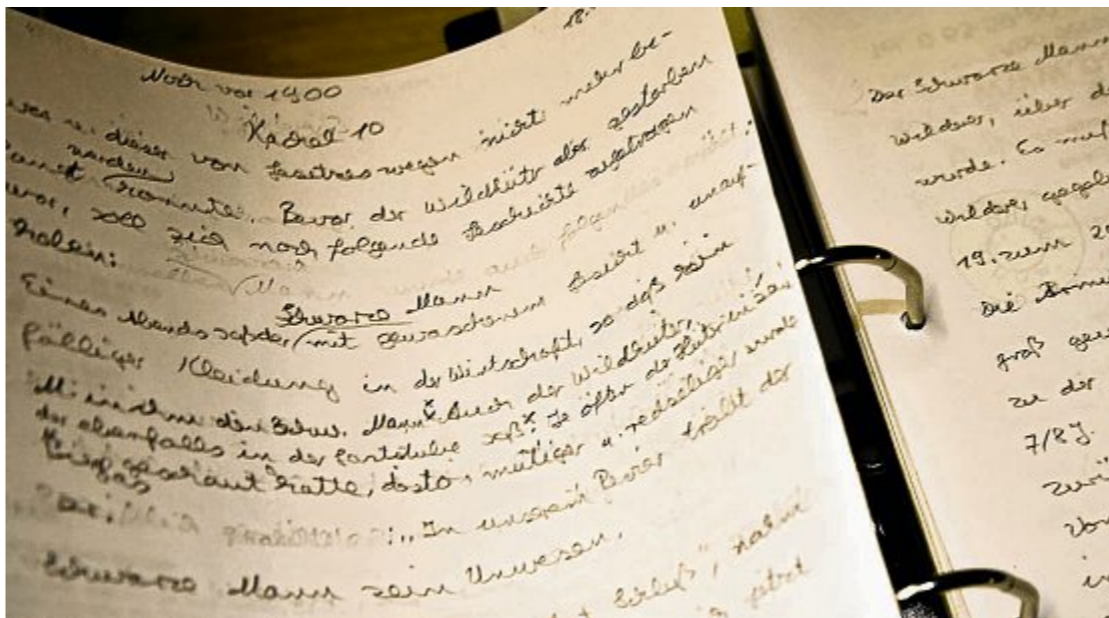 18.
Noch vor 1900
Kapitel 10
war u. dieser von Gesetzes wegen nicht mehr be-
werden
kannt konnte. Bevor der Wildhüter aber gestorben
war, soll sich noch folgende Geschichte zugetragen
haben:
Schwarze Mann
Eines Abends saß der mit gewaschenem Gesicht u. unauf-
fälliger Kleidung in der Wirtschaft, so daß kein
in ihm den Schw. Mann Auch der Wildhüter,
der ebenfalls in der Gaststube saß. Je öfter der Hüter in sein
geschaut hatte, desto mutiger u. redseliger wurde
er. : „In unserem Revier treibt der
Schwarze Mann sein Unwesen.
Der Schwarze Mann
Wilderer, über d
wurde. Es muß
Wilderer, gegeb
19. zum 20
Die Armu
groß gew
zu der
7/8 J.
Zurü
Vor
in